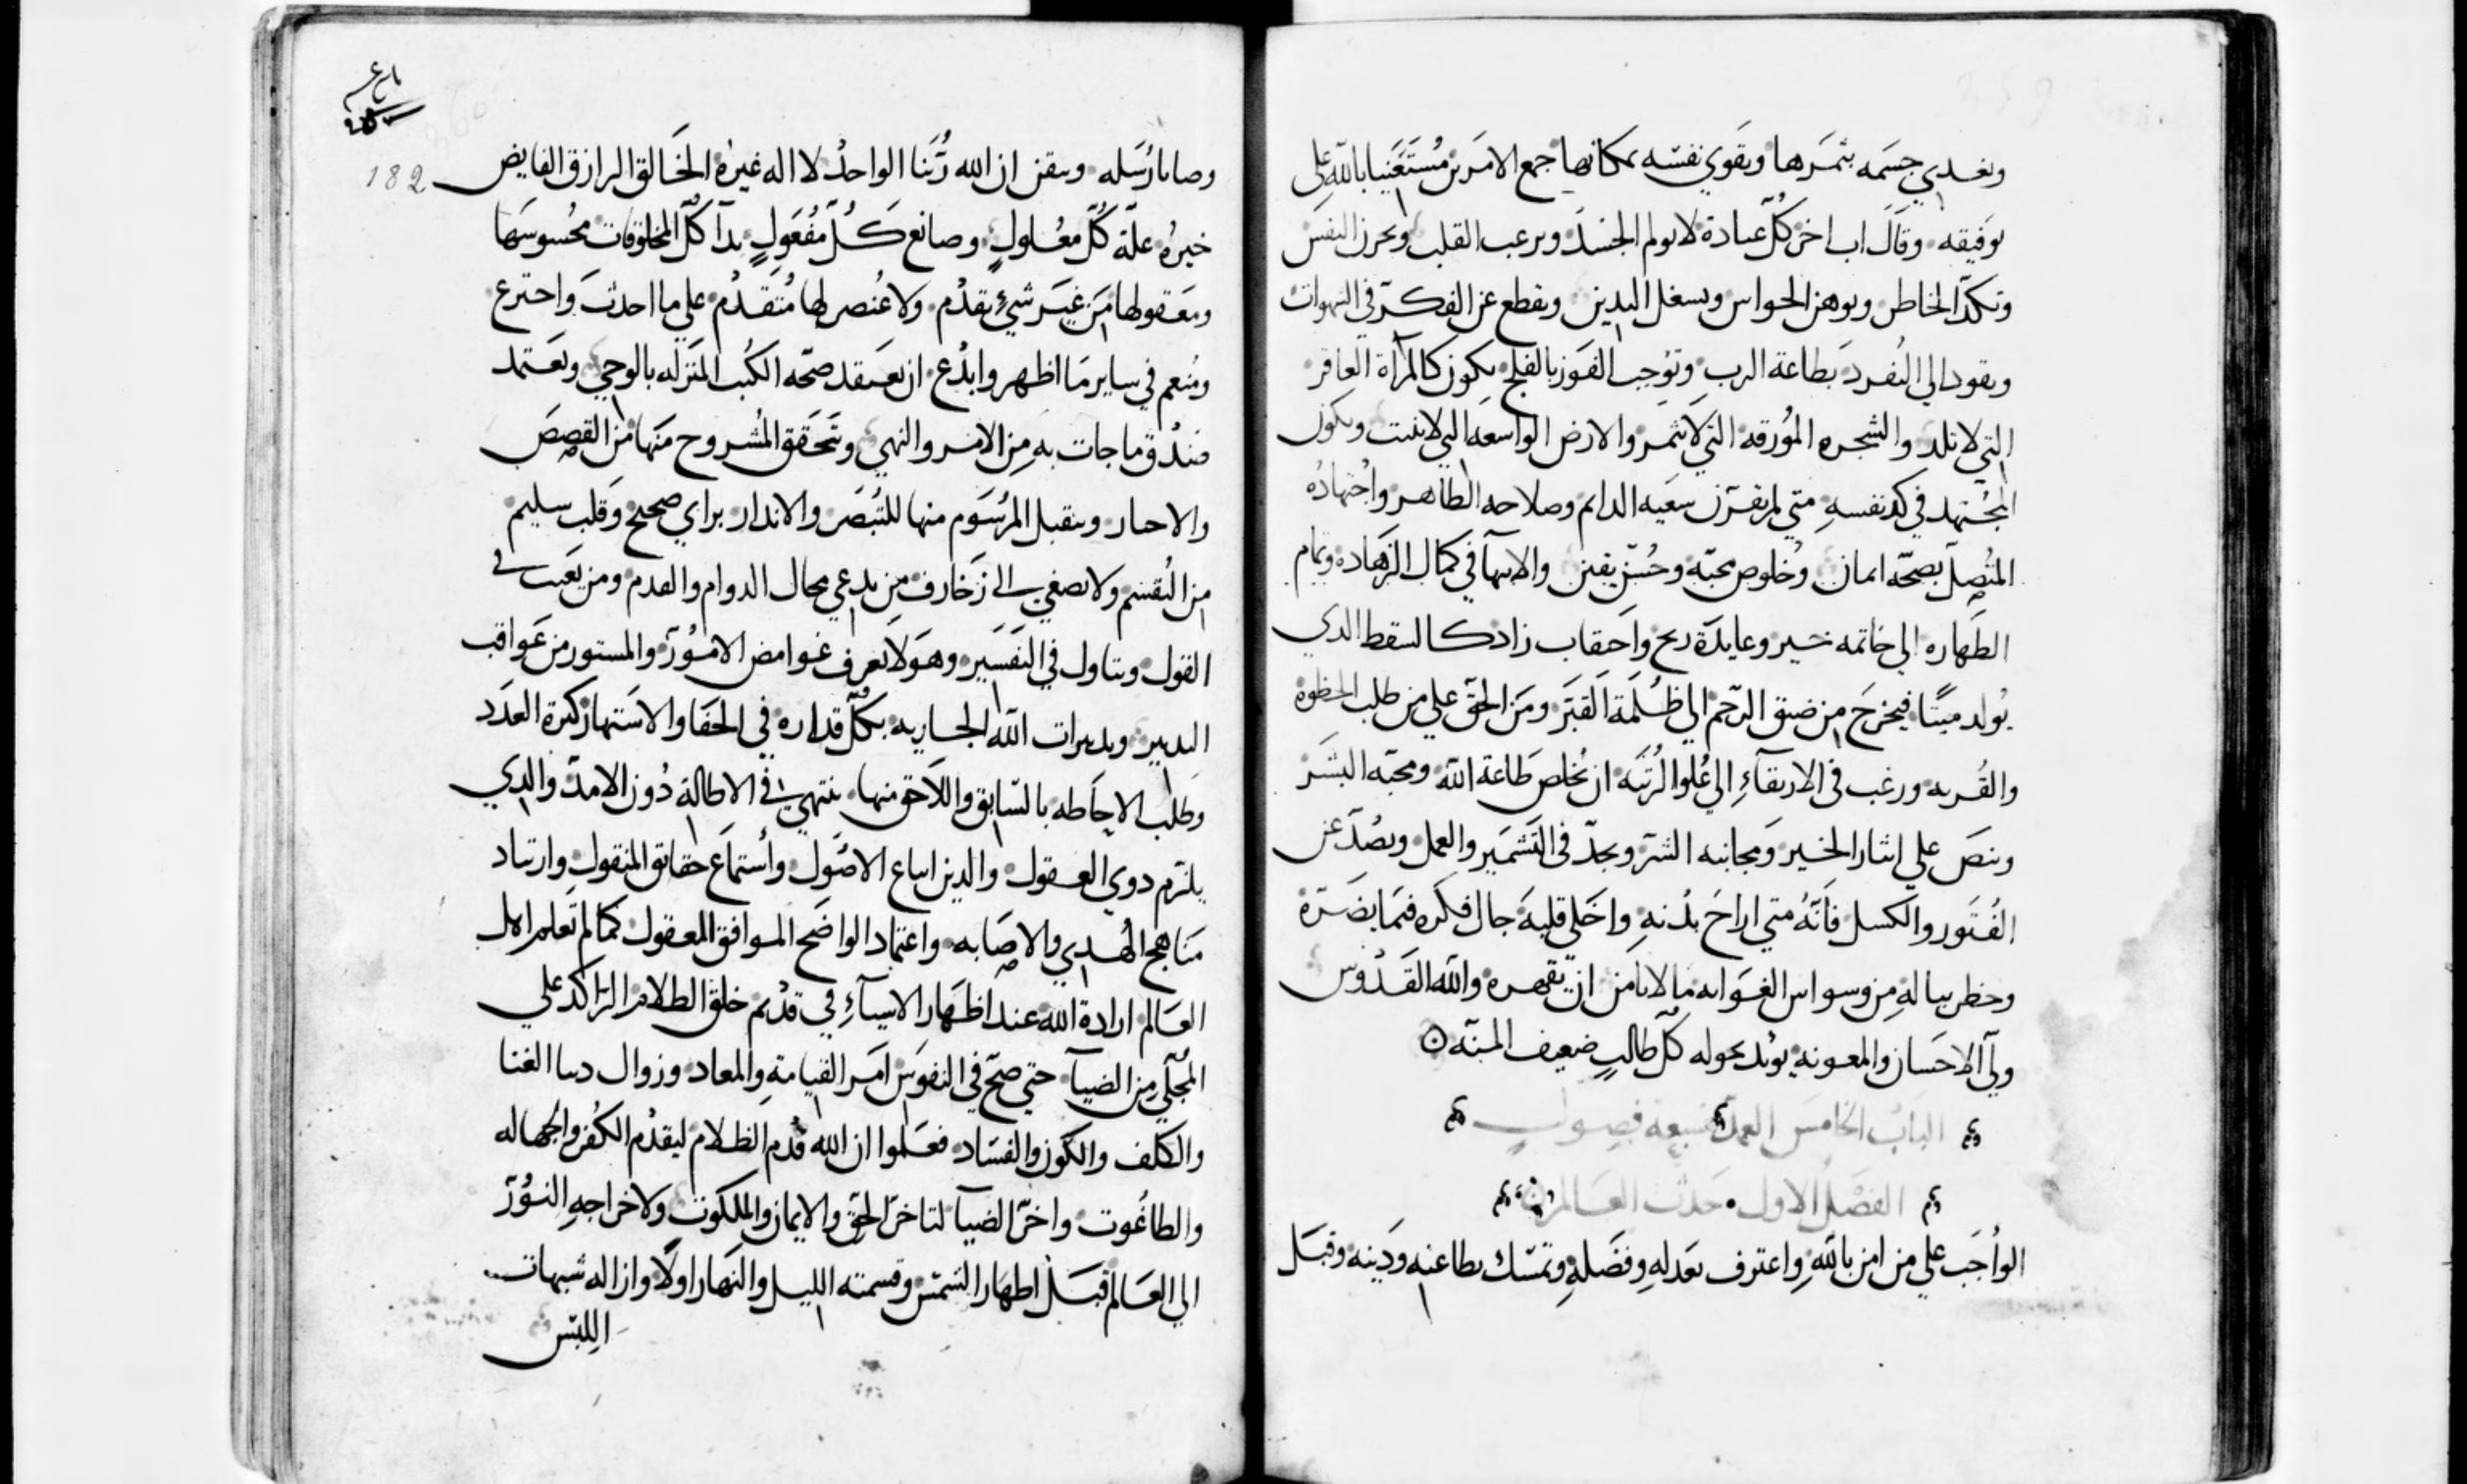 ويغدي جسمه بثمرها ويقوي نفسه بمكانها جمع الامرين مستغنيا بالله على
توفيقه وقال اب اخر كل عبادة لا تولم الجسد وترعب القلب وتحرز النفس
وتكد الخاطر وتوهن الحواس وتسغل اليدين وتقطع عن الفكر في الشهوات
وتقود الى التفرد بطاعة الرب وتوجب الفوز بالفلج تكون كالمرآة العاقر
التي لا تلد والشجره المورقه التي لا تثمر والارض الواسعه التي لا تنبت ويكون
المجتهد في كد نفسه متى لم يقرن سعيه الدايم وصلاحه الظاهر واجتهاده
المتصل بصحة ايمان وخلوص محبة وحسن يقين والانتها في كمال الزهاده وتمام
الطهاره الى خاتمه خير وعايدة ربح واحقاب زاد كالسقط الدي
يولد ميتا فيخرج من ضيق الرحم الى ظلمة القبر ومن الحق على من طلب الحظوة
والقربه ورغب في الارتقآء الى علو الرتبه ان يخلص طاعة الله ومحبة البشر
وينص على ايثار الخير ومجانبه الشر ويجد في التشمير والعمل ويصد عن
الفتور والكسل فانه متى اراح بدنه واخلى قلبه جال فكره فيما يضره
وخطر بباله من وسواس الغوايه ما لا يامن ان يقهره والله القدوس
ولي الاحسان والمعونه يويد بحوله كل طالب ضعيف المنه
الباب الخامس العمل سبعة فصول
الفصل الاول حدث العالم
الواجب على من امن بالله واعترف بعدله وفضله وتمسك بطاعته ودينه وقبل
182
وصايا رسله وتيقن ان الله ربنا الواحد لا اله غيره الخالق الرازق الفايض
خيره علة كل معلول وصانع كل مفعول بدا كل المخلوقات محسوسها
ومعقولها من غير شيء تقدم ولا عنصر لها متقدم على ما احدث واخترع
ومنعم في ساير ما اظهر وابدع ان يعتقد صحه الكتب المنزله بالوحي ويعتمد
صدق ما جات به من الامر والنهي ويتحقق المشروح منها من القصص
والاخبار ويتقبل المرسوم منها للتبصر والاندار براي صحيح وقلب سليم
من التقسم ولا يصغي الى زخارف من يدعي محال الدوام والقدم ومن يعيب في
القول ويتاول في التفسير وهو لا يعرف غوامض الامور والمستور من عواقب
التدبير وتدبيرات الله الجاريه بكل قداره في الخفا والاشتهار كثرة العدد
وطلب الاحاطه بالسابق واللاحق منها ينتهي في الاطالة دون الامد والدي
يلزم دوي العقول والدين اتباع الاصول واستماع حقايق المنقول وارتياد
مناهج الهدي والاصابه واعتماد الواضح الموافق المعقول كما لم تعلم اهل
العالم ارادة الله عند اظهار الاشيآء في قديم خلق الظلام الراكد على
المجلي من الضيآ حتى صح في النفوس امر القيامة والمعاد وزوال دنيا الفنا
والكلف والكون والفساد فعلموا ان الله قدم الظلام ليقدم الكفر والجهاله
والطاغوت واخر الضيآ لتاخر الحق والايمان والملكوت ولاخراجه النور
الى العالم قبل اظهار الشمس وقسمته الليل والنهار اولا وازاله شبهات
اللبس